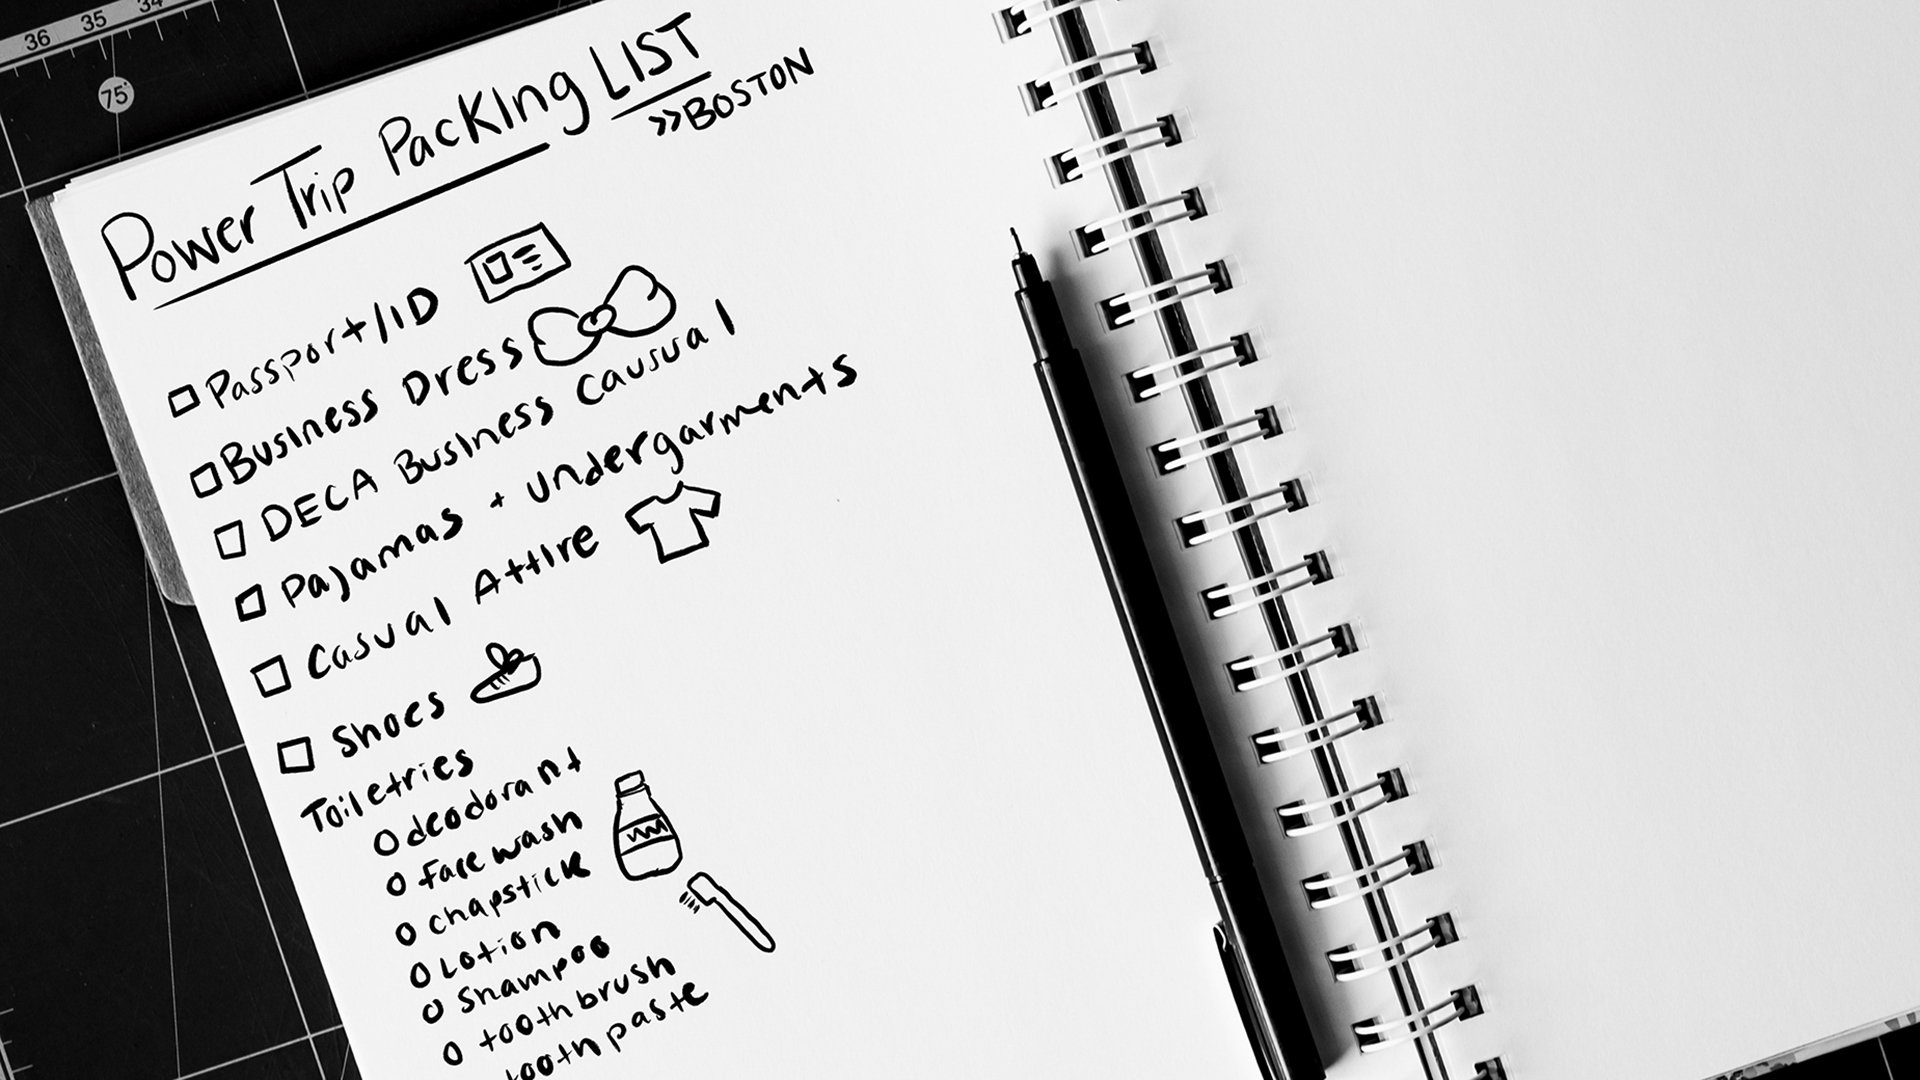 36 35 34
75°
Power Trip Packing LIST
»BOSTON
Passport/ID
Business Dress
DECA Business Causual
Pajamas + undergarments
Casual Attire
Shoes
Toiletries
deodorant
face wash
chapstick
Lotion
Shampoo
toothbrush
toothpaste